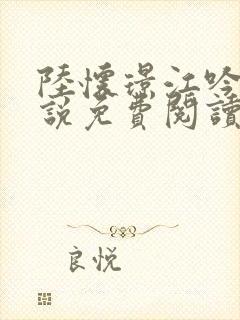 陸懷璟江吟
說免費閱讀
良悅